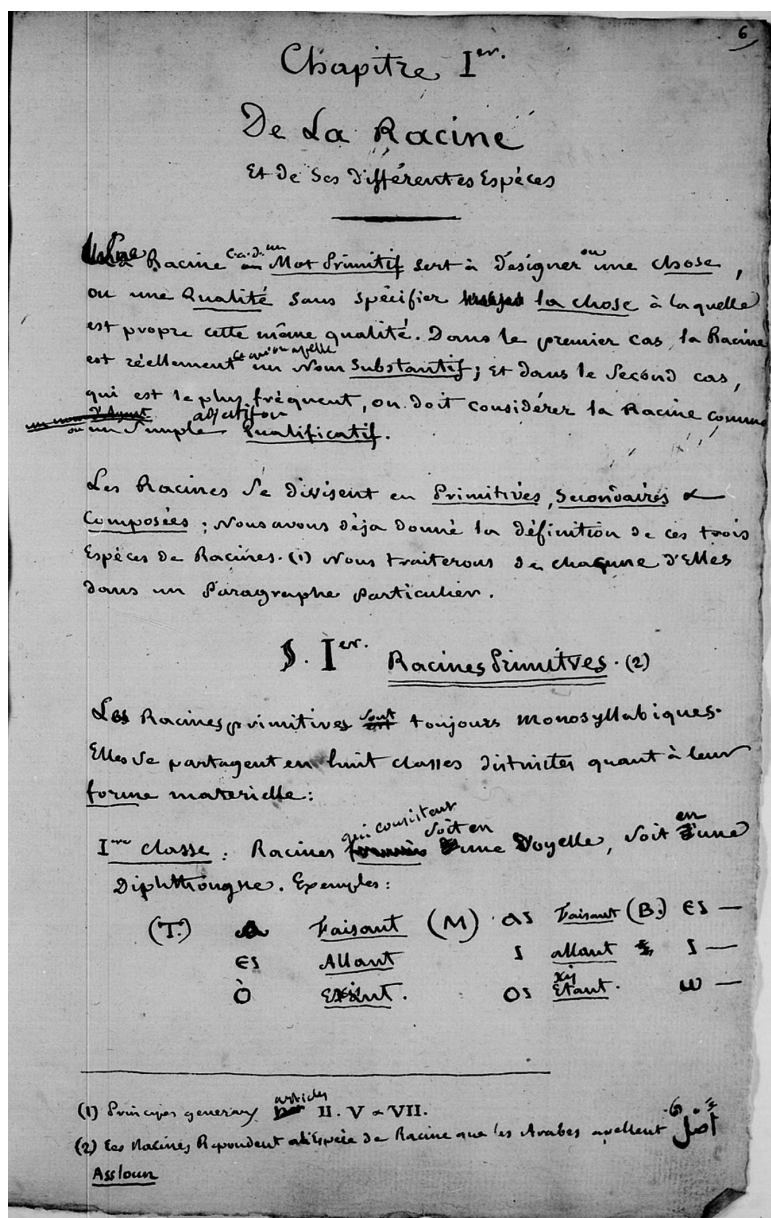 6
Chapitre Ier.
De La Racine
Et de Ses différentes Espéces
Une Racine c.a.d. un Mot Primitif sert à désigner ou une chose,
ou une Qualité sans spécifier la chose à laquelle
est propre cette même qualité. Dans le premier cas, la Racine
est réellement ce qu'on apelle un Nom Substantif; et dans le Second cas,
qui est le plus fréquent, on doit considérer la Racine comme
un Simple adjectif ou Qualificatif.
Les Racines Se divisent en Primitives, Secondaires &
Composées; Nous avons déja donné la définition de ces trois
Espéces de Racines. (1) Nous traiterons de chacune d'Elles
dans un Paragraphe Particulier.
§. Ier. Racines Primitves. (2)
Les Racines primitives sont toujours monosyllabiques.
Elles Se partagent en huit classes distinctes quant à leur
forme materielle:
Ire classe: Racines qui consistent soit en une Voyelle, soit en une
Diphthongue. Exemples:
(T.) ⲁ Faisant (M) ⲟⲓ Faisant (B.) ⲉⲓ —
ⲉⲓ Allant ⲓ allant ⲓ —
ⲟ̀ Existant. ⲟⲓ Etant. ⲱ —
(1) Principes generaux articles II. V & VII.
(2) Ces Racines Repondent à l'Espéce de Racine que les Arabes apellent أَصْلٌ
Assloun